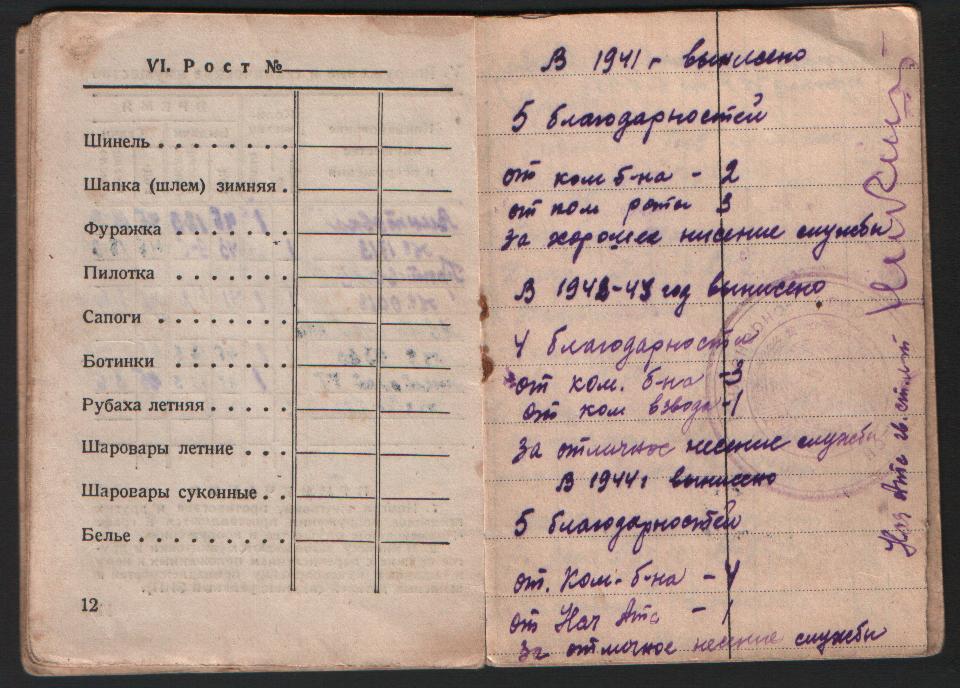 VI. Рост №
Шинель
Шапка (шлем) зимняя
Фуражка
Пилотка
Сапоги
Ботинки
Рубаха летняя
Шаровары летние
Шаровары суконные
Белье
12
В 1941 г вынисено
5 благодарностей
от ком б-на - 2
от ком роты 3
за хорошее нисение службы
В 1942-43 год вынисено
4 благодарности
от ком. б-на
от ком взвода - 1
за отличное несение службы
В 1944г вынисено
5 благодарностей
от. Ком. б-на - 4
от Нач Ата - 1
за отличное несение службы